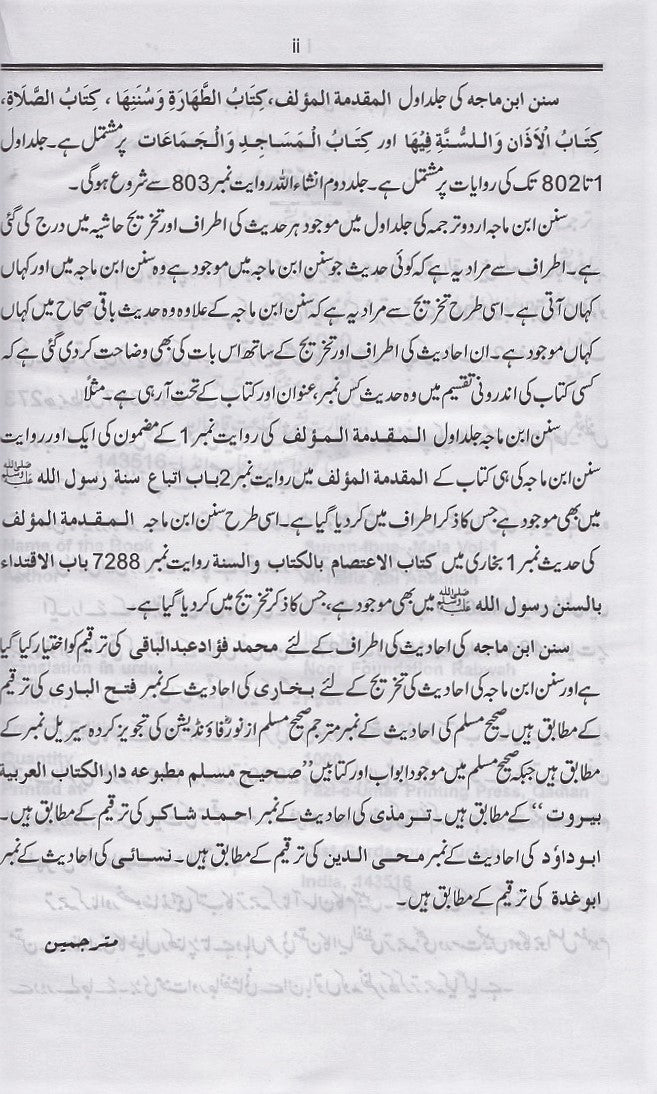 ii
سنن ابن ماجه کی جلد اول المقدمة المؤلف، كِتَابُ الطَّهَارَةِ وَسُنَنِهَا ، كِتَابُ الصَّلَاةِ،
كِتَابُ الْأَذَانِ وَاللسُّنَّةِ فِيْهَا اور كِتَابُ الْمَسَاجِدِ وَالْجَمَاعَات پر مشتمل ہے۔ جلد اول
1 تا 802 تک کی روایات پر مشتمل ہے۔ جلد دوم انشاء اللہ روایت نمبر 803 سے شروع ہوگی۔
سنن ابن ماجہ اردو ترجمہ کی جلد اول میں موجود ہر حدیث کی اطراف اور تخریج حاشیہ میں درج کی گئی
ہے۔ اطراف سے مراد یہ ہے کہ کوئی حدیث جو سنن ابن ماجہ میں موجود ہے وہ سنن ابن ماجہ میں اور کہاں
کہاں آتی ہے۔ اسی طرح تخریج سے مراد یہ ہے کہ سنن ابن ماجہ کے علاوہ وہ حدیث باقی صحاح میں کہاں
کہاں موجود ہے۔ ان احادیث کی اطراف اور تخریج کے ساتھ اس بات کی بھی وضاحت کر دی گئی ہے کہ
کسی کتاب کی اندرونی تقسیم میں وہ حدیث کس نمبر، عنوان اور کتاب کے تحت آ رہی ہے۔ مثلاً
سنن ابن ماجہ جلد اول المقدمة المؤلف کی روایت نمبر 1 کے مضمون کی ایک اور روایت
سنن ابن ماجہ کی ہی کتاب کے المقدمة المؤلف میں روایت نمبر 2 باب اتباع سنة رسول الله ﷺ
میں بھی موجود ہے، جس کا ذکر اطراف میں کر دیا گیا ہے۔ اسی طرح سنن ابن ماجہ المقدمة المؤلف
کی حدیث نمبر 1 بخاری میں كتاب الاعتصام بالكتاب والسنة روایت نمبر 7288 باب الاقتداء
بالسنن رسول الله ﷺ میں بھی موجود ہے، جس کا ذکر تخریج میں کر دیا گیا ہے۔
سنن ابن ماجه کی احادیث کی اطراف کے لئے محمد فؤاد عبدالباقی کی ترقیم کو اختیار کیا گیا
ہے اور سنن ابن ماجہ کی احادیث کی تخریج کے لئے بخاری کی احادیث کے نمبر فتح الباری کی ترقیم
کے مطابق ہیں۔ صحیح مسلم کی احادیث کے نمبر مترجم صحیح مسلم از نور فاؤنڈیشن کی تجویز کردہ سیریل نمبر کے
مطابق ہیں جبکہ صحیح مسلم میں موجود ابواب اور کتابیں ’’صحیح مسلم مطبوعہ دار الکتاب العربیة
بیروت‘‘ کے مطابق ہیں۔ ترمذی کی احادیث کے نمبر احمد شاکر کی ترقیم کے مطابق ہیں۔
ابو داؤد کی احادیث کے نمبر محی الدین کی ترقیم کے مطابق ہیں۔ نسائی کی احادیث کے نمبر
ابو غدة کی ترقیم کے مطابق ہیں۔
مترجمین